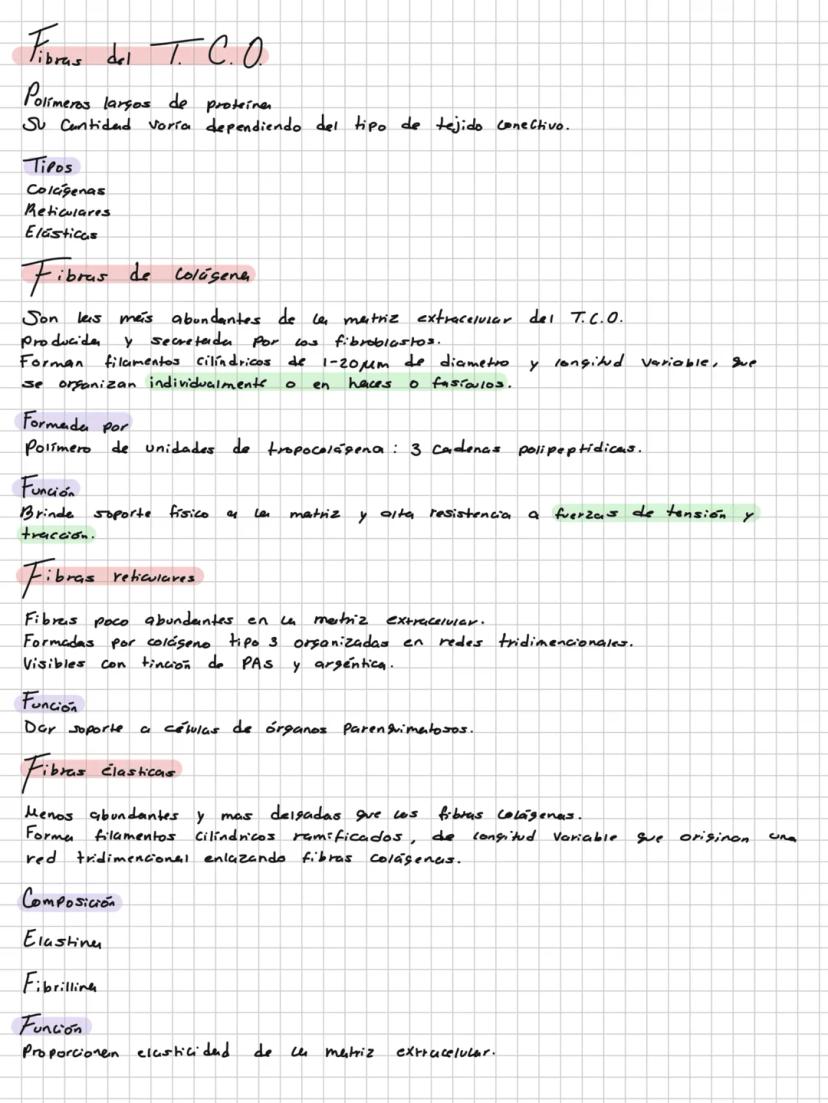 Fibras del T.C.O.
Polímeros largos de proteína
Su Cantidad varía dependiendo del tipo de tejido conectivo.
Tipos
Colágenas
Reticulares
Elásticas
Fibras de Colágena
Son las más abundantes de la matriz extracelular del T.C.O.
Producida y secretada por los fibroblastos.
Forman filamentos cilíndricos de 1-20µm de diametro y longitud variable, que
se organizan individualmente o en haces o fasículos.
Formada por
Polímero de unidades de tropocolágena: 3 cadenas polipeptídicas.
Función
Brinda soporte físico a la matriz y alta resistencia a fuerzas de tensión y
tracción.
Fibras reticulares
Fibras poco abundantes en la matriz extracelular.
Formadas por colágeno tipo 3 organizadas en redes tridimencionales.
Visibles con tinción de PAs y argéntica.
Función
Dar soporte a células de órganos Parenquimatosos.
Fibras élasticas
Menos abundantes y mas delgadas que las fibras colágenas.
Forma filamentos cilíndricos ramificados, de longitud variable que originan una
red tridimencional enlazando fibras colágenas.
Composición
Elastina
Fibrillina
Función
Proporcionan elasticidad de la matriz extracelular.